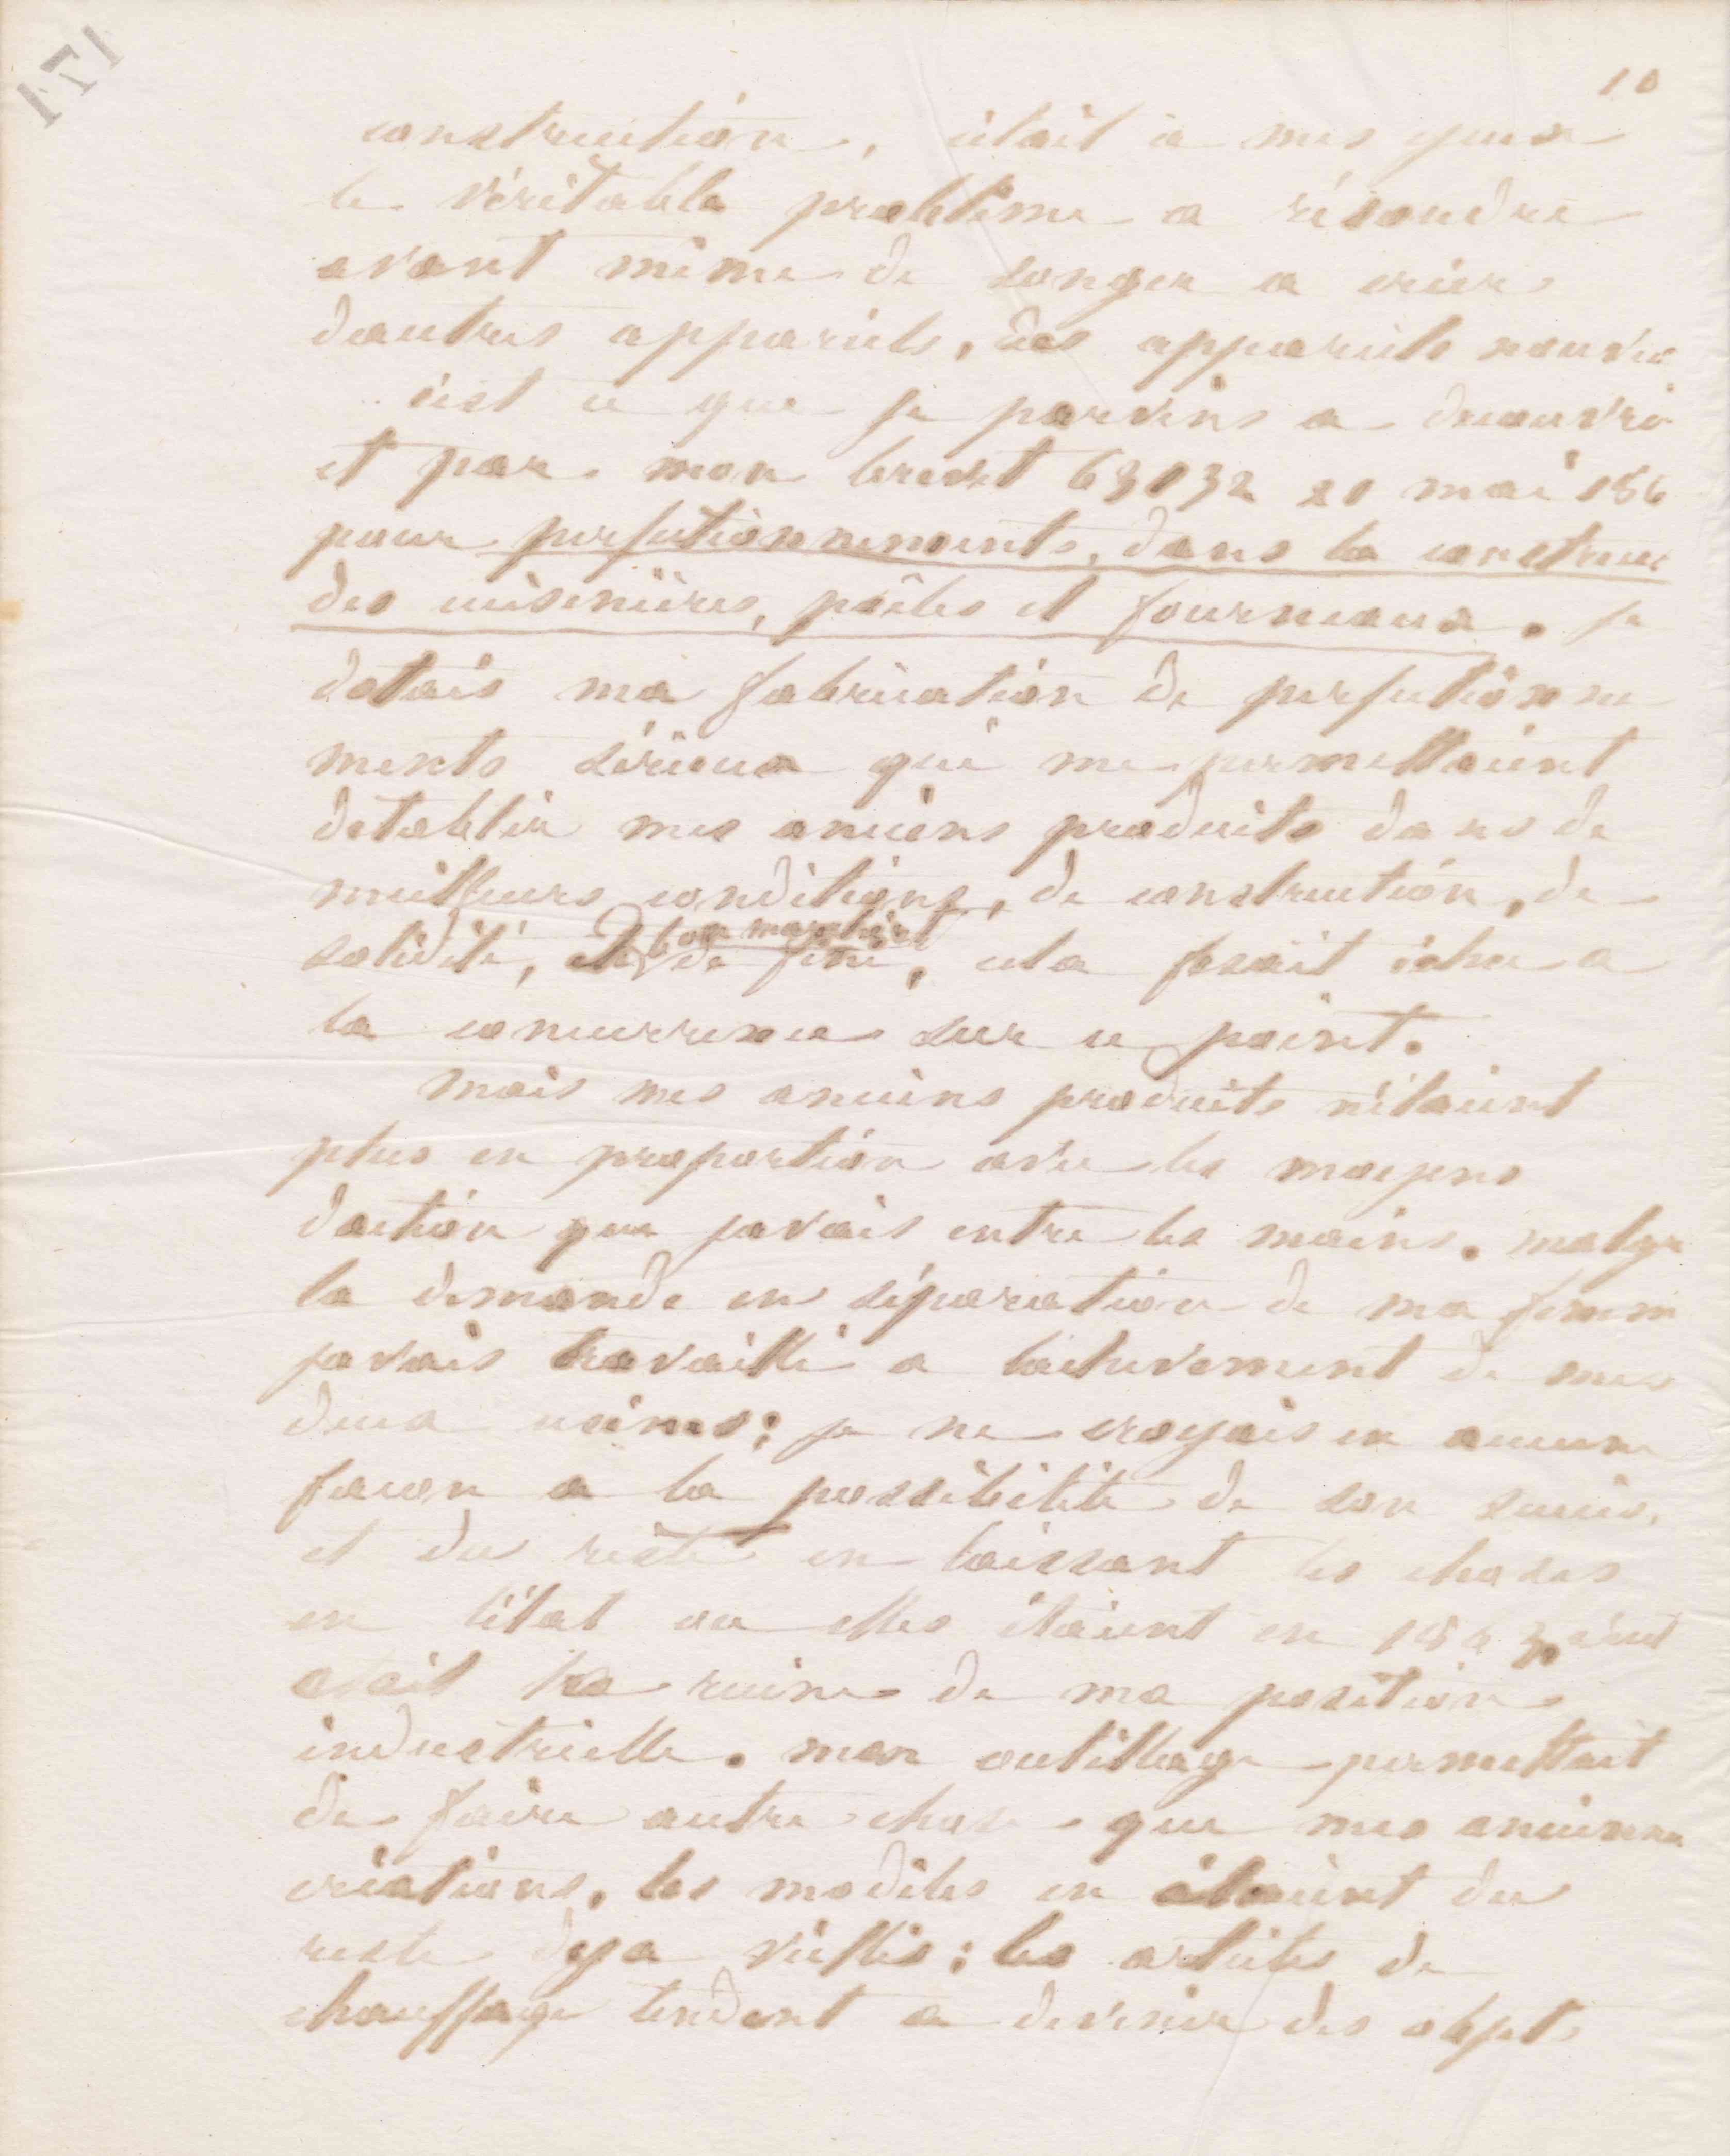 171
10
construction, était à mes yeux
le véritable problème a résoudre
avant même de songer a créer
dautres appareils, des appareils nouve
c'est ce que je parvins a decouvri
et par mon brevet 63032 20 mai 186
pour perfectionnements, dans la construc
des cuisinières, poêles et fourneaux. je
dotais ma fabrication de perfectionne
ments sérieux qui me permettaient
detablir mes anciens produits dans de
meilleurs conditions, de construction, de
bon marché et
solidité, de fini, cela fesait échec a
la concurrence sur ce point.
mais mes anciens produits n'étaient
plus en proportion avec les moyens
daction que javais entre les mains. malgr
la demande en séparation de ma femm
javais travaillé a lachevement de mes
deux usines; je ne croyais en aucune
facon a la possibilité de son succès.
et du reste en laissant les choses
en l'état ou elles étaient en 1863 c'eut
été la ruine de ma position
industrielle. mon outillage permettait
de faire autre chose que mes anciennes
créations, les modèles en étaient du
reste deja vieillis; les articles de
chauffage tendent a devenir des objets